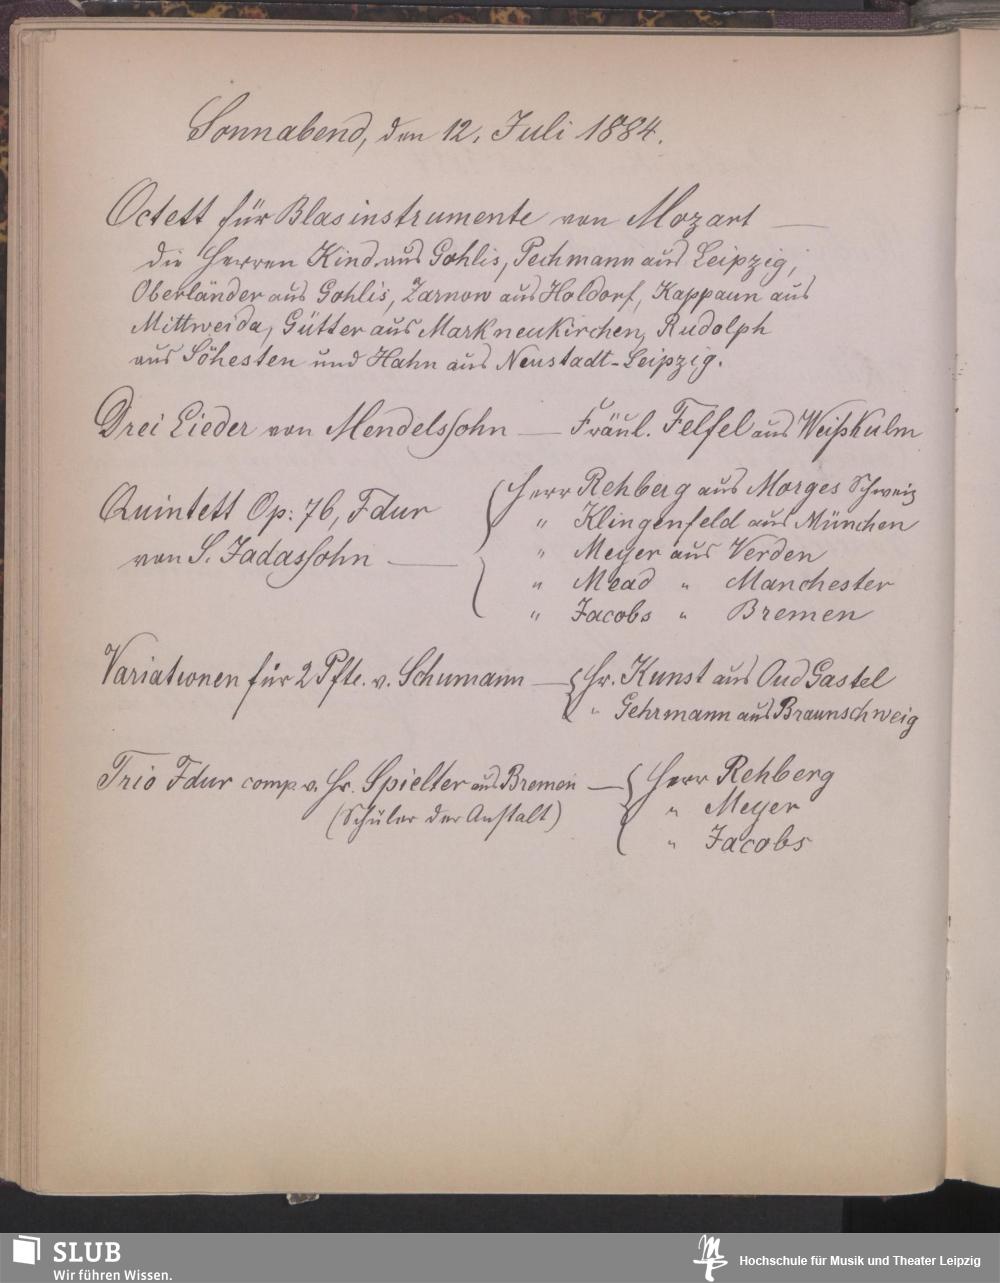 Sonnabend, den 12. Juli 1884.
Octett für Blasinstrumente von Mozart —
die Herren Kind aus Gohlis, Pechmann aus Leipzig,
Oberländer aus Gohlis, Zarnow aus Holdorf, Kappaun aus
Mittweida, Gütter aus Markneukirchen, Rudolph
aus Söhesten und Hahn aus Neustadt-Leipzig.
Drei Lieder von Mendelssohn — Fräul. Felfel aus Weißkulm
Quintett Op: 76, Fdur
von S. Jadassohn —
Herr Rehberg aus Morges Schweiz
" Klingenfeld aus München
" Meyer aus Verden
" Mead " Manchester
" Jacobs " Bremen
Variationen für 2 Pfte. v. Schumann — Hr. Kunst aus Oud Gastel
" Gehrmann aus Braunschweig
Trio Fdur comp. v. Hr. Spielter aus Bremen — Herr Rehberg
(Schüler der Anstalt) " Meyer
" Jacobs
SLUB
Wir führen Wissen.
Hochschule für Musik und Theater Leipzig